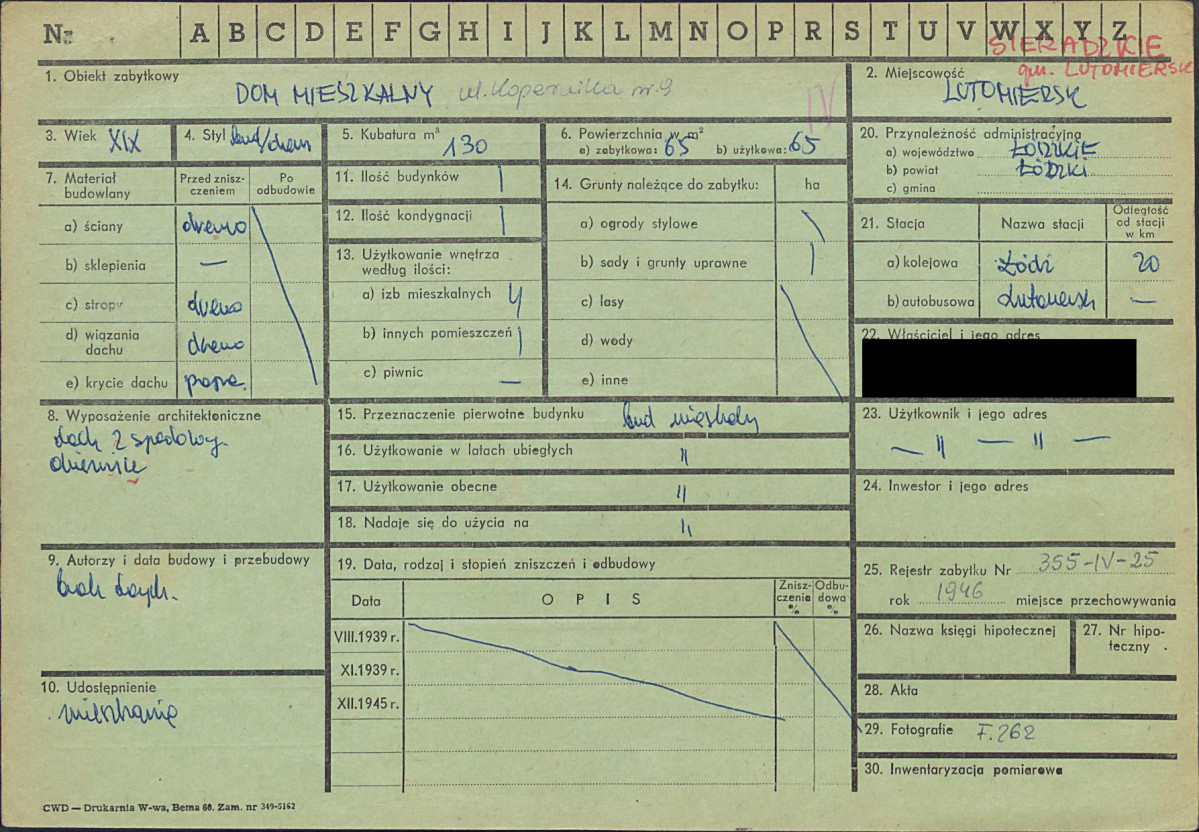 Nr A B C D E F G H I J K L M N O P R S T U V W X Y Z
SIERADZKIE
gm. LUTOMIERSK
1. Obiekt zabytkowy
DOM MIESZKALNY ul. Kopernika nr 9
IV
2. Miejscowość
LUTOMIERSK
3. Wiek XIX
4. Styl bud/drewn
5. Kubatura m³
130
6. Powierzchnia w m²
a) zabytkowa: 65 b) użytkowa: 65
7. Materiał budowlany
Przed zniszczeniem
Po odbudowie
a) ściany drewno
b) sklepienia —
c) stropy drewno
d) wiązania dachu drewno
e) krycie dachu papa.
8. Wyposażenie architektoniczne
dach 2 spadowy
9. Autorzy i data budowy i przebudowy
brak danych.
10. Udostępnienie
mieszkanie
11. Ilość budynków 1
12. Ilość kondygnacji 1
13. Użytkowanie wnętrza
według ilości:
a) izb mieszkalnych 4
b) innych pomieszczeń 1
c) piwnic —
14. Grunty należące do zabytku: ha
a) ogrody stylowe
b) sady i grunty uprawne
c) lasy
d) wody
e) inne
15. Przeznaczenie pierwotne budynku bud mieszkalny
16. Użytkowanie w latach ubiegłych "
17. Użytkowanie obecne "
18. Nadaje się do użycia na "
19. Data, rodzaj i stopień zniszczeń i odbudowy
Data
OPIS
Zniszczenie %
Odbudowa %
VIII.1939 r.
XI.1939 r.
XII.1945 r.
20. Przynależność administracyjna
a) województwo ŁÓDZKIE
b) powiat ŁÓDZKI
c) gmina
21. Stacja
Nazwa stacji
Odległość
od stacji
w km
a) kolejowa Łódź 20
b) autobusowa Lutomiersk —
22. Właściciel i jego adres
23. Użytkownik i jego adres
— " — " —
24. Inwestor i jego adres
25. Rejestr zabytku Nr 355-IV-25
rok 1946 miejsce przechowywania
26. Nazwa księgi hipotecznej
27. Nr hipoteczny
28. Akta
29. Fotografie F.262
30. Inwentaryzacja pomiarowa
CWD — Drukarnia W-wa, Bema 60. Zam. nr 349-5162